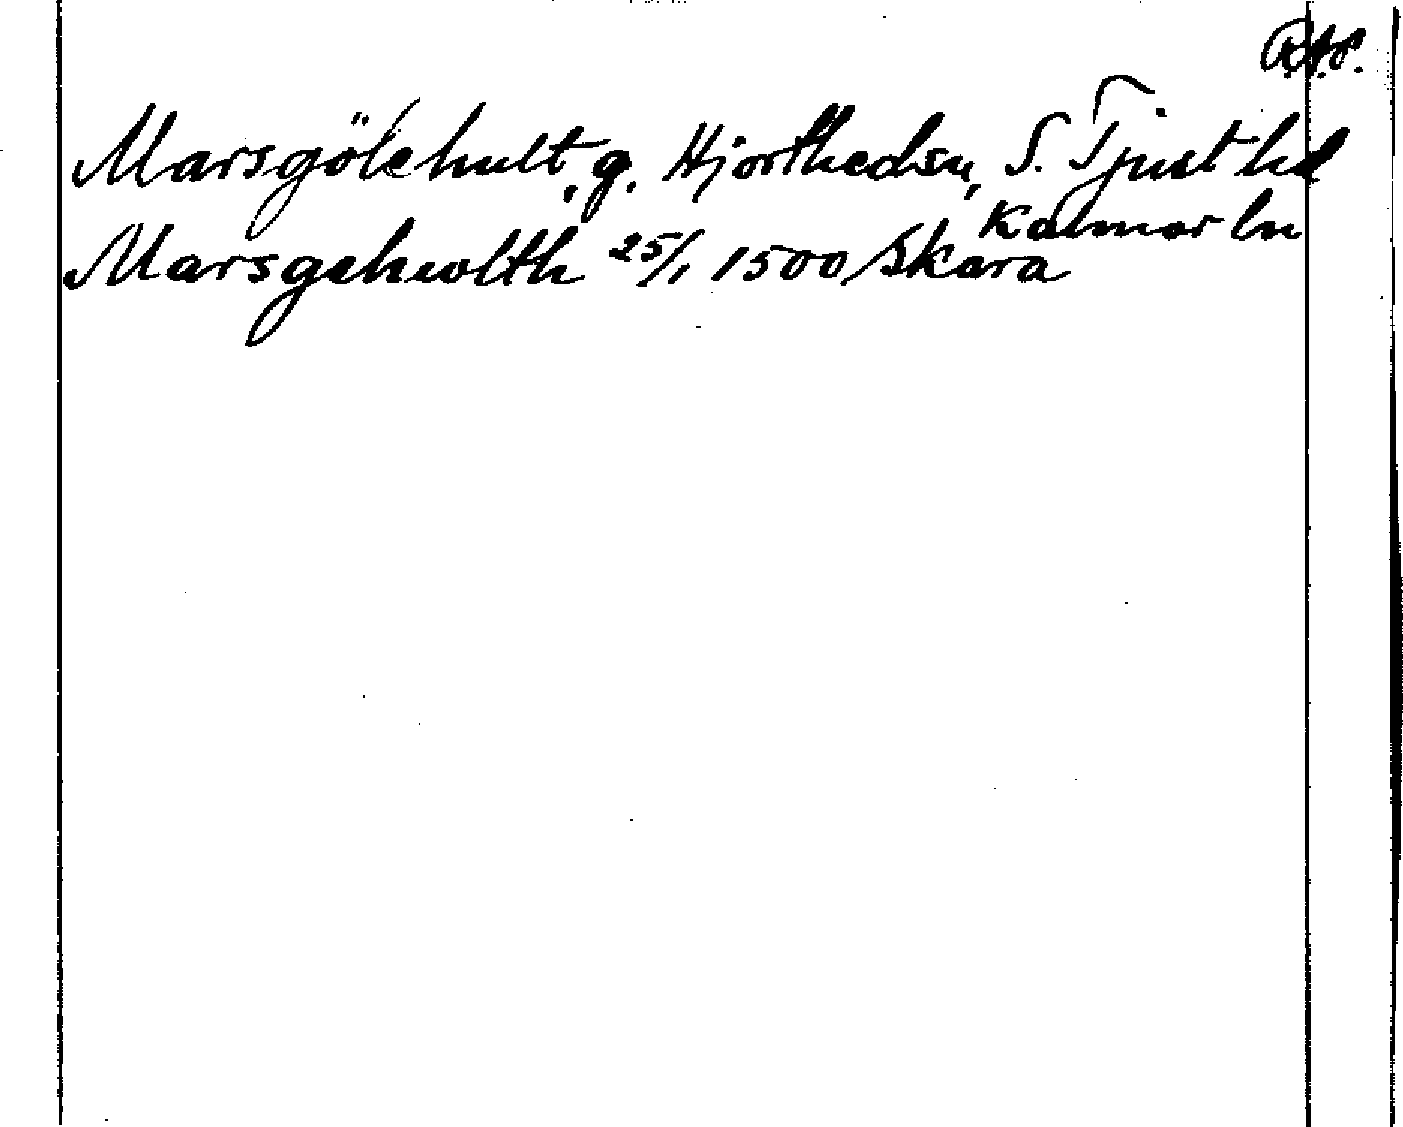 R.A.P.
Marsgölehult, g. Hjorthedsn, S. Tjust hd
Kalmar ln
Marsgehwlth 25/1 1500 Skara